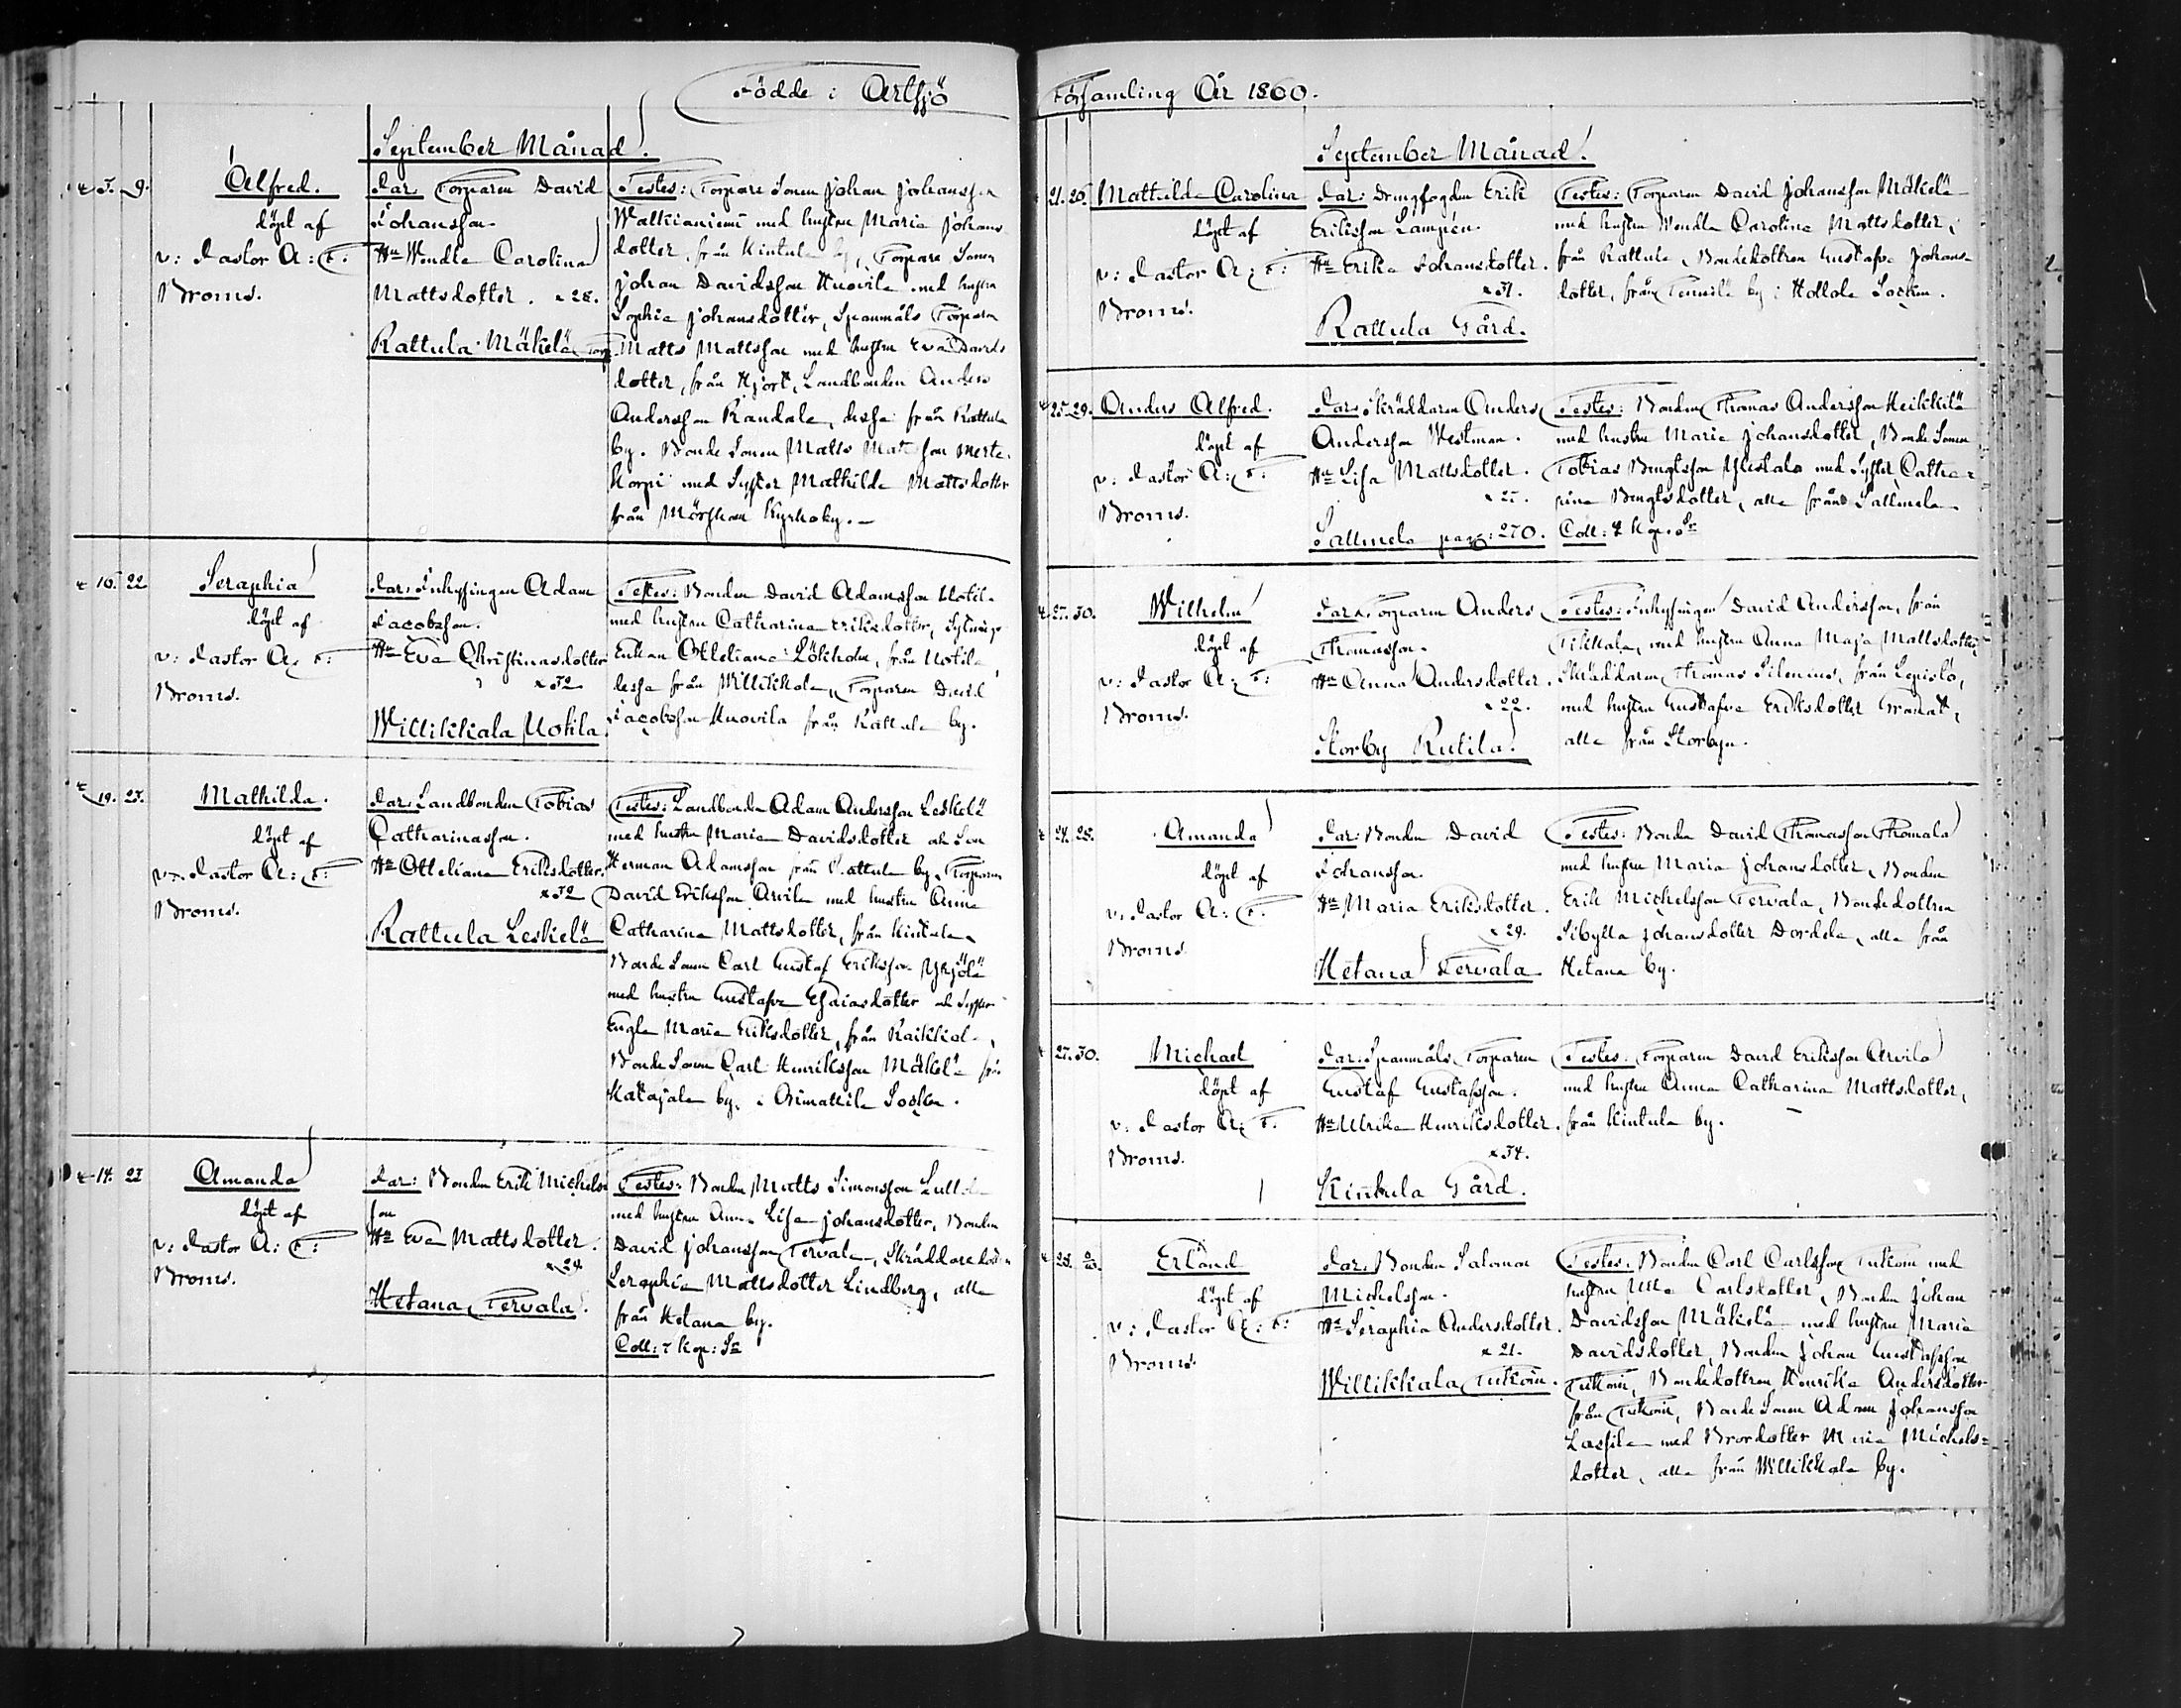 Födde i Artsjö
September Månad.
5. 9.
Alfred.
döpt af
v: Pastor A: F:
Broms.
Far: Torparen David
Johansson.
Hu Wendla Carolina
Mattsdotter. 28.
Rattula Mäkelä Torp.
Testes: Torpare Sonen Johan Johansson
Walkianiemi med hustru Maria Johans
dotter, från Kintula by, Torpare Sonen
Johan Davidsson Knovila med hustru
Sophia Johansdotter, Spanmåls Torparen
Matts Mattsson med hustru Eva Davids
dotter, från Hjort, Landbonden Anders
Andersson Randala, dessa från Rattula
by. Bonde Sonen Matts Matsson
Korpi med Syster Mathilda Mattsdotter
från Mörskom Kyrkoby.
10. 22
Seraphia
döpt af
v: Pastor A: F:
Broms.
Far: Inhysingen Adam
Jacobsson.
Hu Eva Christinasdotter
32
Willikkala Uotila.
Testes: Bonden David Adamsson Uotila
med hustru Catharina Eriksdotter,
Enkan Otteliana Löfholm, från Uotila,
dessa från Willikkala, Torparen David
Jacobsson Knovila från Rattula by.
19. 23.
Mathilda.
döpt af
v: Pastor A: F:
Broms.
Far: Landbonden Tobias
Catharinasson.
Hu Otteliana Eriksdotter.
32
Rattula Leskelä
Testes: Landbonden Adam Andersson Leskelä
med hustru Maria Davidsdotter och Son
Herman Adamsson från Rattula by, Torparen
David Eriksson Arvila med hustru Anna
Catharina Mattsdotter, från Kintula,
Bonde Sonen Carl Gustaf Eriksson Yrjölä
med hustru Gustafva Esaiasdotter och Syster
Engla Maria Eriksdotter, från
Bonde Sonen Carl Henriksson Mäkelä från
Katajala by, i Orimattila Socken.
14. 23
Amanda
döpt af
v: Pastor A: F:
Broms.
Far: Bonden Erik Michels
son
Hu Eva Mattsdotter.
29.
Hetana Tervala.
Testes: Bonden Matts Simonsson
med hustru Anna Lisa Johansdotter, Bonden
David Johansson Tervala, Skräddare
Seraphia Mattsdotter Lindberg, alla
från Hetana by.
Coll: 7 Kop: Sr
Församling År 1860.
September Månad.
21. 26.
Mathilda Carolina
döpt af
v: Pastor A: F:
Broms.
Far: Drängfogden Erik
Eriksson Lampén.
Hu Erika Johansdotter.
31.
Rattula Gård.
Testes: Torparen David Johansson Mäkelä
med hustru Wendla Carolina Mattsdotter,
från Rattula, Bondedottren Gustafva Johans
dotter, från Tennilä by i Hollola Socken.
25. 29.
Anders Alfred.
döpt af
v: Pastor A: F:
Broms.
Far: Skräddaren Anders
Andersson Westman.
Hu Lisa Mattsdotter.
Sallmela pag: 270.
Testes: Bonden Thomas Andersson Heikkilä
med hustru Maria Johansdotter, Bonde Sonen
Tobias Bengtsson Ylestalo med Syster Catha=
rina Bengtsdotter, alla från Sallmela
Coll: 7 Kop: Sr
27. 30.
Wilhelm
döpt af
v: Pastor A: F:
Broms.
Far: Torparen Anders
Thomasson.
Hu Anna Andersdotter.
22.
Storby Rutila.
Testes: Inhysingen David Andersson, från
Tikkala, med hustru Anna Maja Mattsdotter,
Skräddaren Thomas Silenius, från Lepistö,
med hustru Gustafva Eriksdotter Granat,
alla från Storbyn.
24. 28.
Amanda
döpt af
v: Pastor A: F:
Broms.
Far: Bonden David
Johansson.
Hu Maria Eriksdotter.
29.
Hetana Tervala
Testes: Bonden David Thomasson Thomala
med hustru Maria Johansdotter, Bonden
Erik Michelsson Tervala, Bondedottren
Sibylla Johansdotter Dordela, alla från
Hetana by.
27. 30.
Michael
döpt af
v: Pastor A: F:
Broms.
Far: Spanmåls Torparen
Gustaf Gustafsson.
Hu Ulrika Henriksdotter.
34.
Kintula Gård.
Testes: Torparen David Eriksson Arvila
med hustru Anna Catharina Mattsdotter,
från Kintula by.
28.
Erland
döpt af
v: Pastor A: F:
Broms.
Far: Bonden Salomon
Michelsson.
Hu Seraphia Andersdotter.
21.
Willikkala Tutkoin.
Testes: Bonden Carl Carlsson Tutkoin med
hustru Ulla Carlsdotter, Bonden Johan
Davidsson Mäkelä med hustru Maria
Davidsdotter, Bonden Johan Gustafsson
Tutkoin, Bondedottren Henrika Andersdotter
från Tutkoin, Bonde Sonen Adam Johansson
Lassila med Brordotter Maria Michels=
dotter, alla från Willikkala by.